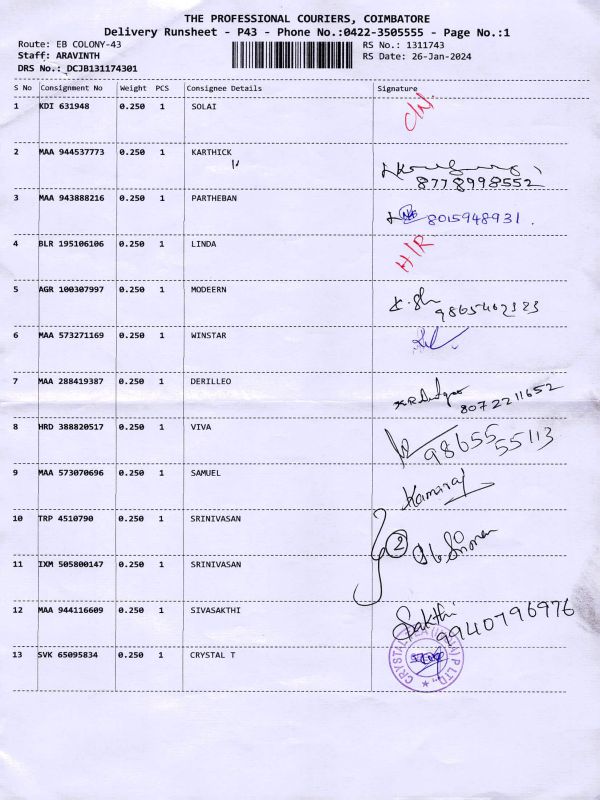 THE PROFESSIONAL COURIERS, COIMBATORE
Delivery Runsheet - P43 - Phone No.:0422-3505555 - Page No.:1
Route: EB COLONY-43 RS No.: 1311743
Staff: ARAVINTH RS Date: 26-Jan-2024
DRS No.: DCJB131174301
S No Consignment No Weight PCS Consignee Details Signature
1 KDI 631948 0.250 1 SOLAI
2 MAA 944537773 0.250 1 KARTHICK
8778998552
3 MAA 943888216 0.250 1 PARTHEBAN
8015948931.
4 BLR 195106106 0.250 1 LINDA H/R
5 AGR 100307997 0.250 1 MODEERN
6 MAA 573271169 0.250 1 WINSTAR
7 MAA 288419387 0.250 1 DERILLEO
8072211652
8 HRD 388820517 0.250 1 VIVA
98655 55113
9 MAA 573070696 0.250 1 SAMUEL
Kamaraj
10 TRP 4510790 0.250 1 SRINIVASAN
2
11 IXM 505800147 0.250 1 SRINIVASAN
12 MAA 944116609 0.250 1 SIVASAKTHI
Sakthi
9940796976
13 SVK 65095834 0.250 1 CRYSTAL T